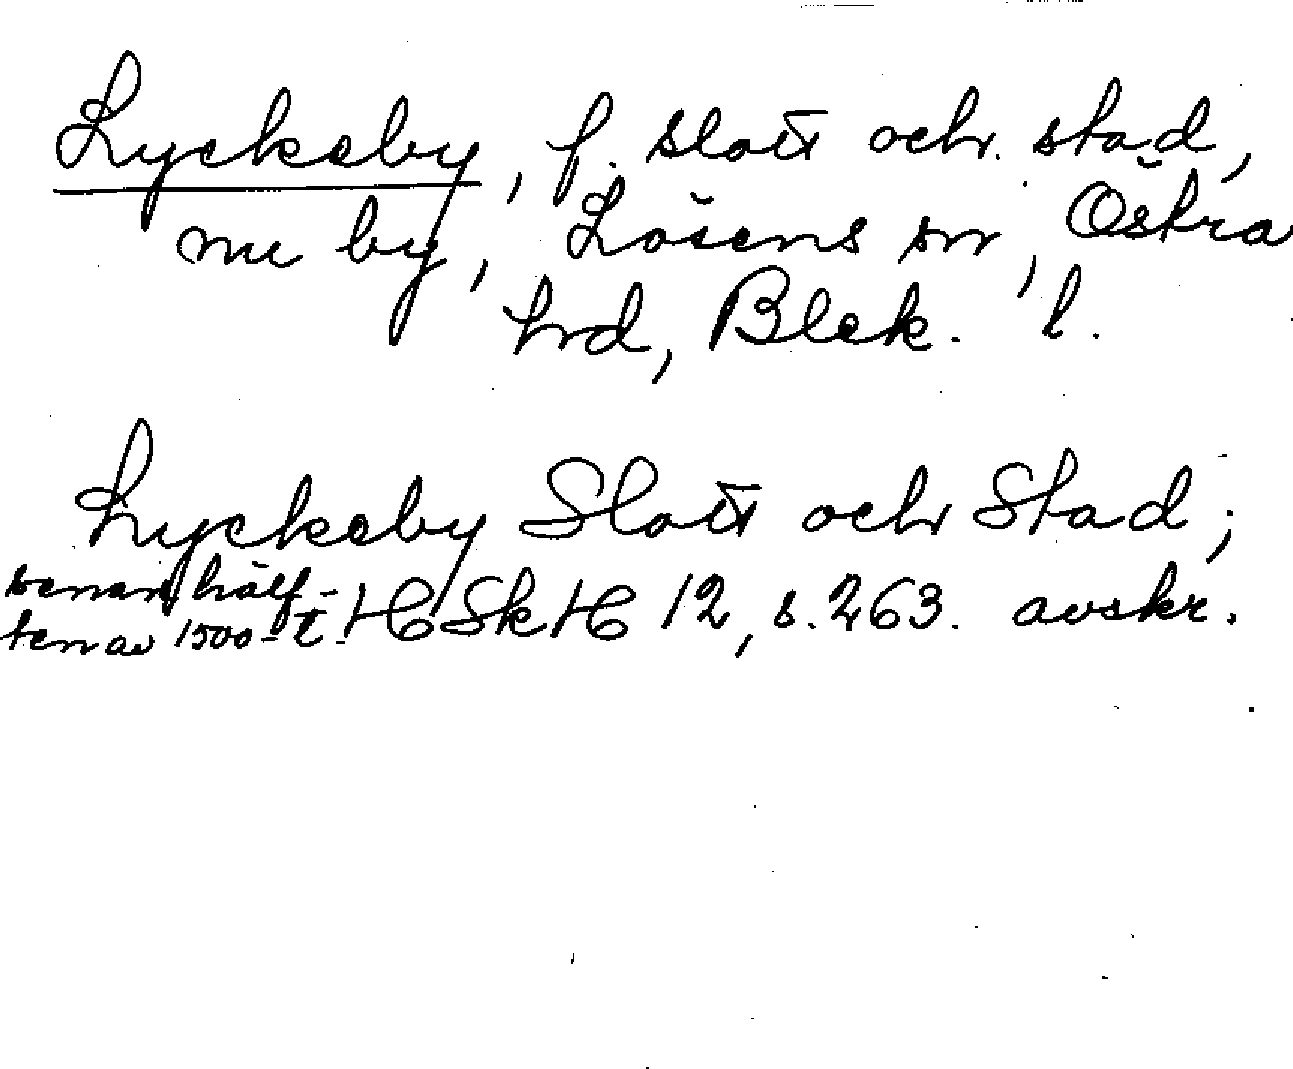 Lyckeby, f. slott och stad,
nu by, Lösens sn, Östra
hrd, Blek. l.
Lyckeby Slott och Stad;
senare hälf-
ten av 1500-t. HSkH 12, s. 263. avskr.